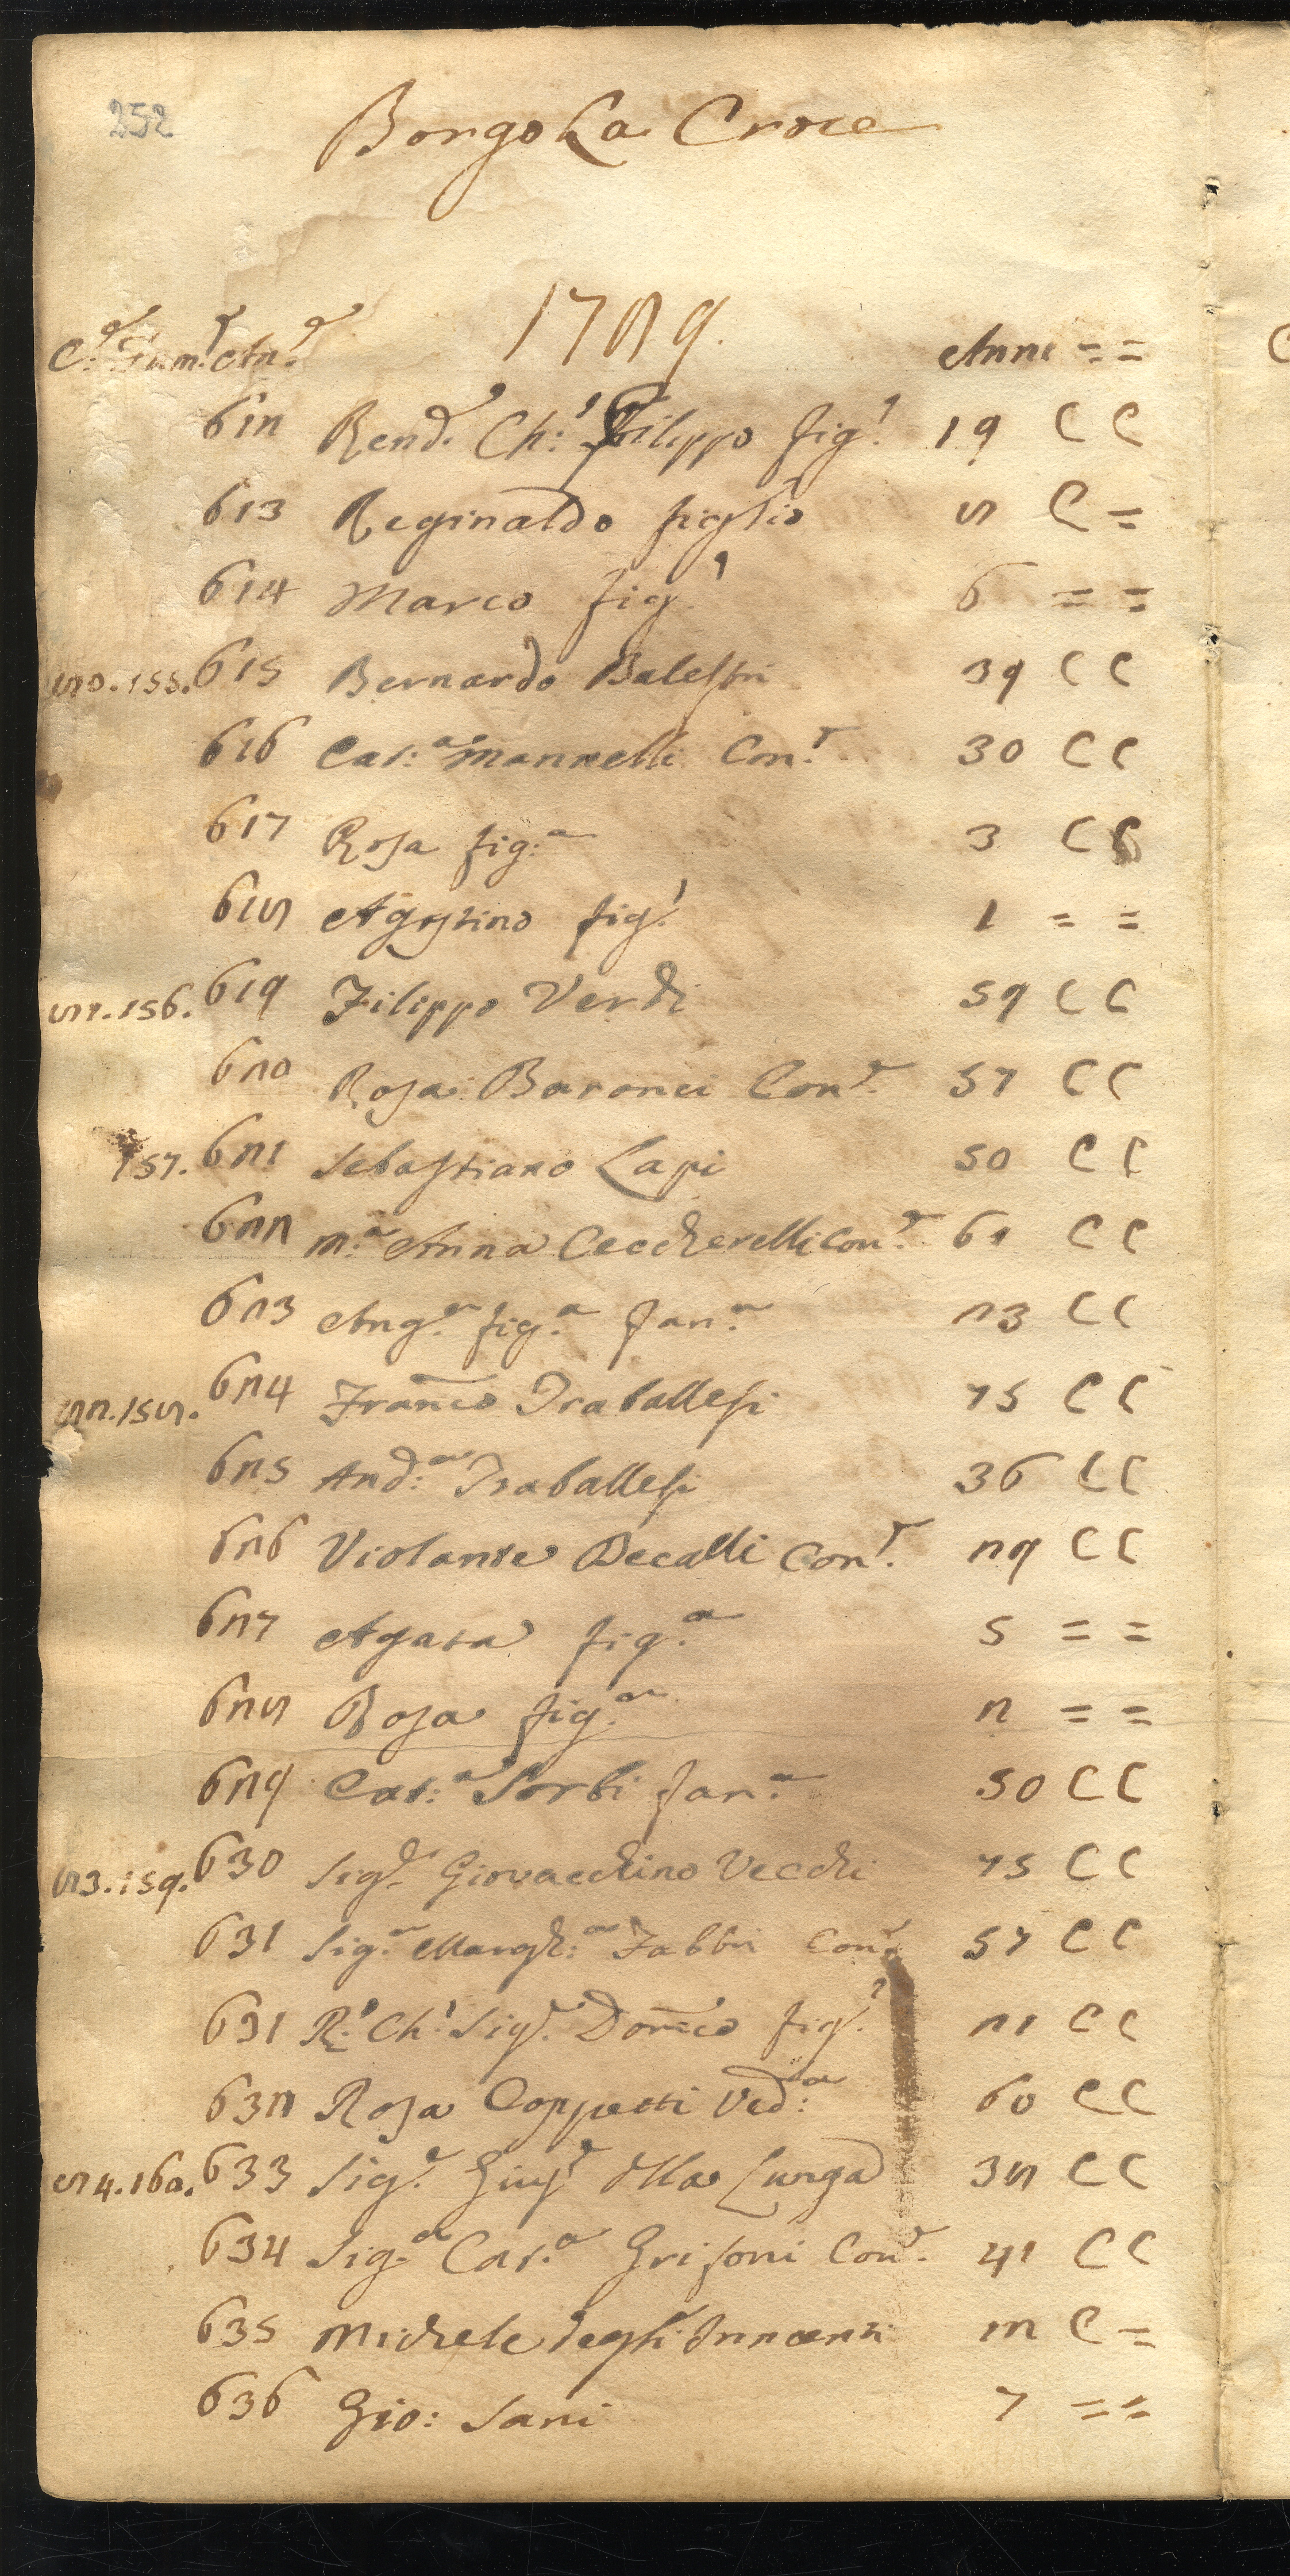 252
Borgo La Croce
1789.
C.e Fam.e An.e Anni = =
612 Rend.o Ch.o Filippo fig.o 19 C C
613 Reginaldo figlio 8 C =
614 Marco fig.o 6 = =
80. 155. 615 Bernardo Balestri 39 C C
616 Cat:a Mannelli Con.e 30 C C
617 Rosa fig:a 3 C C
618 Agostino fig.o 1 = =
81. 156. 619 Filippo Verdi 59 C C
620 Rosa Baronci Con.e 57 C C
157. 621 Sebastiano Lapi 50 C C
622 M.a Anna Ceccherelli Con.e 61 C C
623 Ang.a fig.a Fan.a 23 C C
82. 158. 624 Franco Traballesi 75 C C
625 And:a Traballesi 36 C C
626 Violante Becalli Con.e 29 C C
627 Agata fig.a 5 = =
628 Rosa fig.a 2 = =
629 Cat:a Sorbi Fan.a 50 C C
83. 159. 630 Sig.e Giovacchino Vecchi 75 C C
631 Sig.a Margh:a Fabbri Con.e 57 C C
631 R.o Ch.o Sig.r Domco fig.o 21 C C
632 Rosa Coppetti Ved:a 60 C C
84. 160. 633 Sig.e Giuse Della Lunga 38 C C
634 Sig.a Cat.a Grifoni Con.e 41 C C
635 Michele degli Innocenti 12 C =
636 Gio: Sani 7 = =